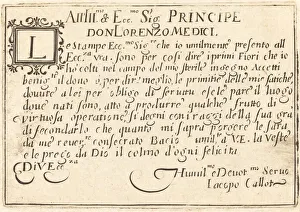 All Ill.mo & Ecc.mo Sig. PRINCIPE
DON LORENZO MEDICI.
Le stampe Ecc.mo Sig.re che io umilmente presento all
Ecc.za vra. sono per cosi dire i primi Fiori che io
hò colti nel campo del mio sterile ingegno Accetti
benig.te il dono, ò per dir meglio, le primitie delle mie fatiche
douute a lei per obligo di seruitu e se le pare che il luogo
doue nati sono, atto à produrre qualche frutto di
virtuosa operatione, si degni con i raggi della sua gra
di secondarlo che quanto mi saprà porgere le sarà
da me reuer.te consecrato Bacio umil.te à V.E. la Veste
e le prego da Dio il colmo d'ogni felicità
Di V. Ecc.za
Humiliss.o e Deuot.mo Seruo
Iacopo Callot.